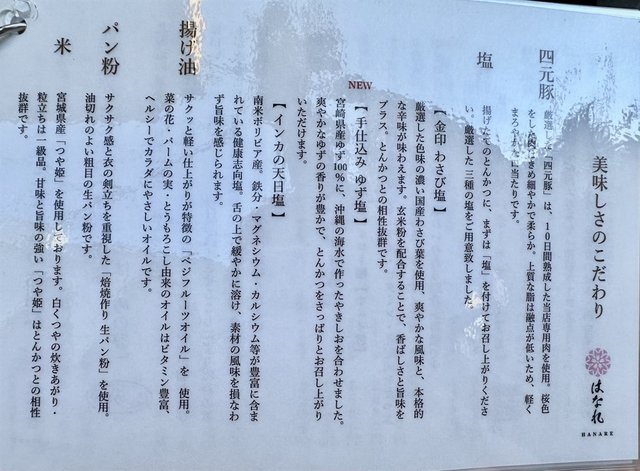 はなれ
HANARE
美味しさのこだわり
四元豚
厳選した「四元豚」は、10日間熟成した当店専用肉を使用。桜色
をした肉はきめ細やかで柔らか。上質な脂は融点が低いため、軽く
まろやかな口当たりです。
塩
揚げたてのとんかつに、まずは「塩」を付けてお召し上がりくださ
い。厳選した三種の塩をご用意致しました。
【金印 わさび塩】
厳選した色味の濃い国産わさび葉を使用、爽やかな風味と、本格的
な辛味が味わえます。玄米粉を配合することで、香ばしさと旨味を
プラス。とんかつとの相性抜群です。
NEW
【手仕込み ゆず塩】
宮崎県産ゆず100％に、沖縄の海水で作ったやきしおを合わせました。
爽やかなゆずの香りが豊かで、とんかつをさっぱりとお召し上がり
いただけます。
【インカの天日塩】
南米ボリビア産。鉄分・マグネシウム・カルシウム等が豊富に含ま
れている健康志向塩。舌の上で緩やかに溶け、素材の風味を損なわ
ず旨味を感じられます。
揚げ油
サクッと軽い仕上がりが特徴の「ベジフルーツオイル」を 使用。
菜の花・パームの実・とうもろこし由来のオイルはビタミン豊富、
ヘルシーでカラダにやさしいオイルです。
パン粉
サクサク感と衣の剣立ちを重視した「焙焼作り 生パン粉」を使用。
油切れのよい粗目の生パン粉です。
米
宮城県産「つや姫」を使用しております。白くつやの炊きあがり・
粒立ちは一級品。甘味と旨味の強い「つや姫」はとんかつとの相性
抜群です。